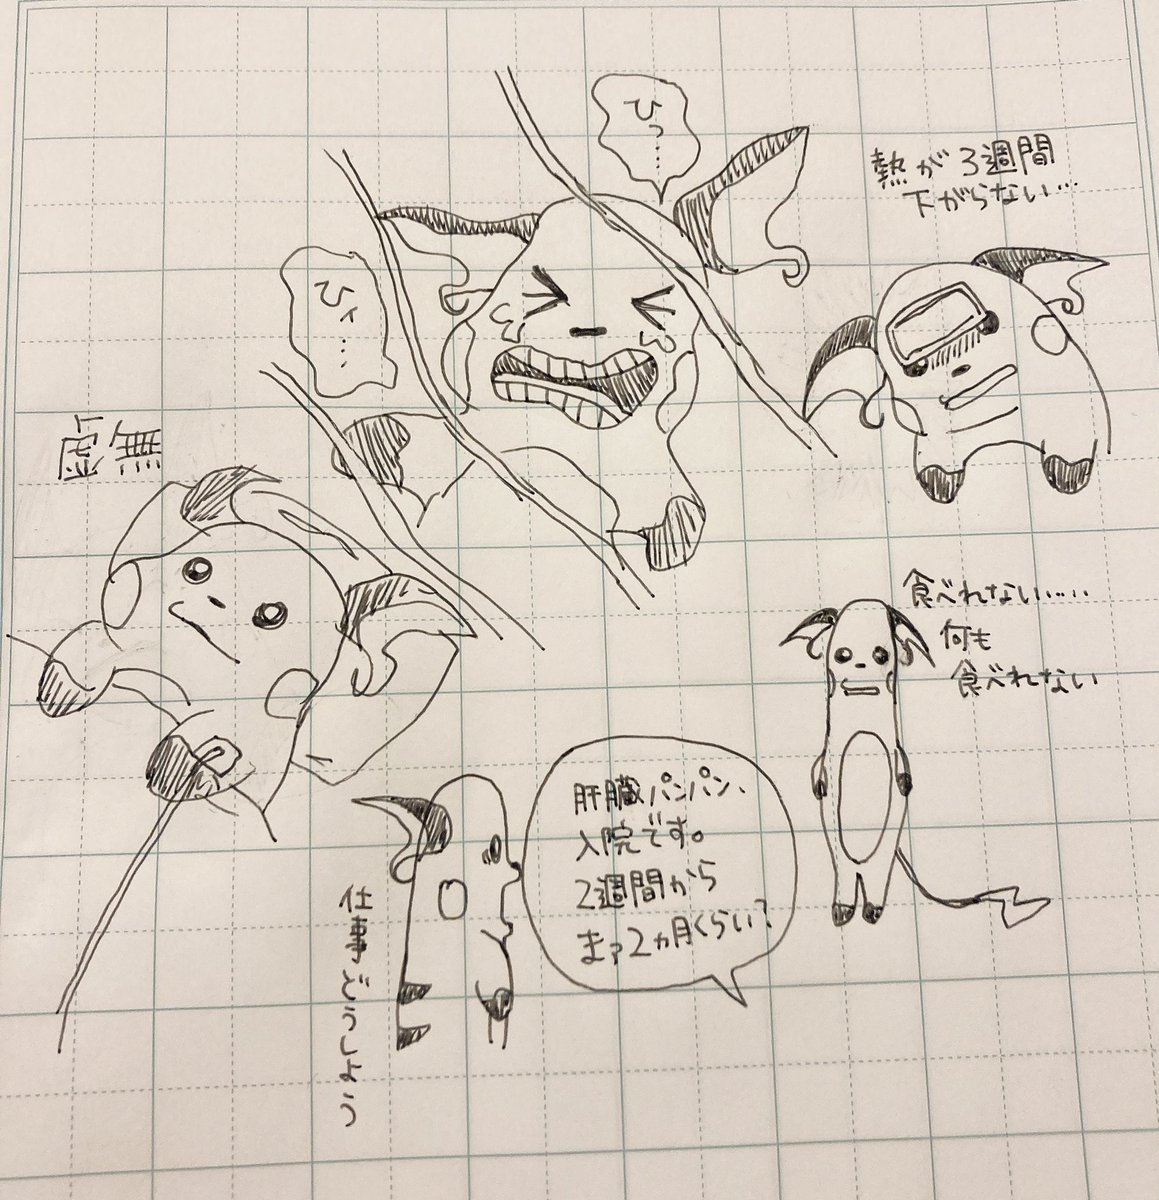 ひっ…
熱が3週間
下がらない…
ひィ…
食べれない……
何も
食べれない
肝臓パンパン、
入院です。
2週間から
まァ2ヵ月くらい？
仕事どうしよう